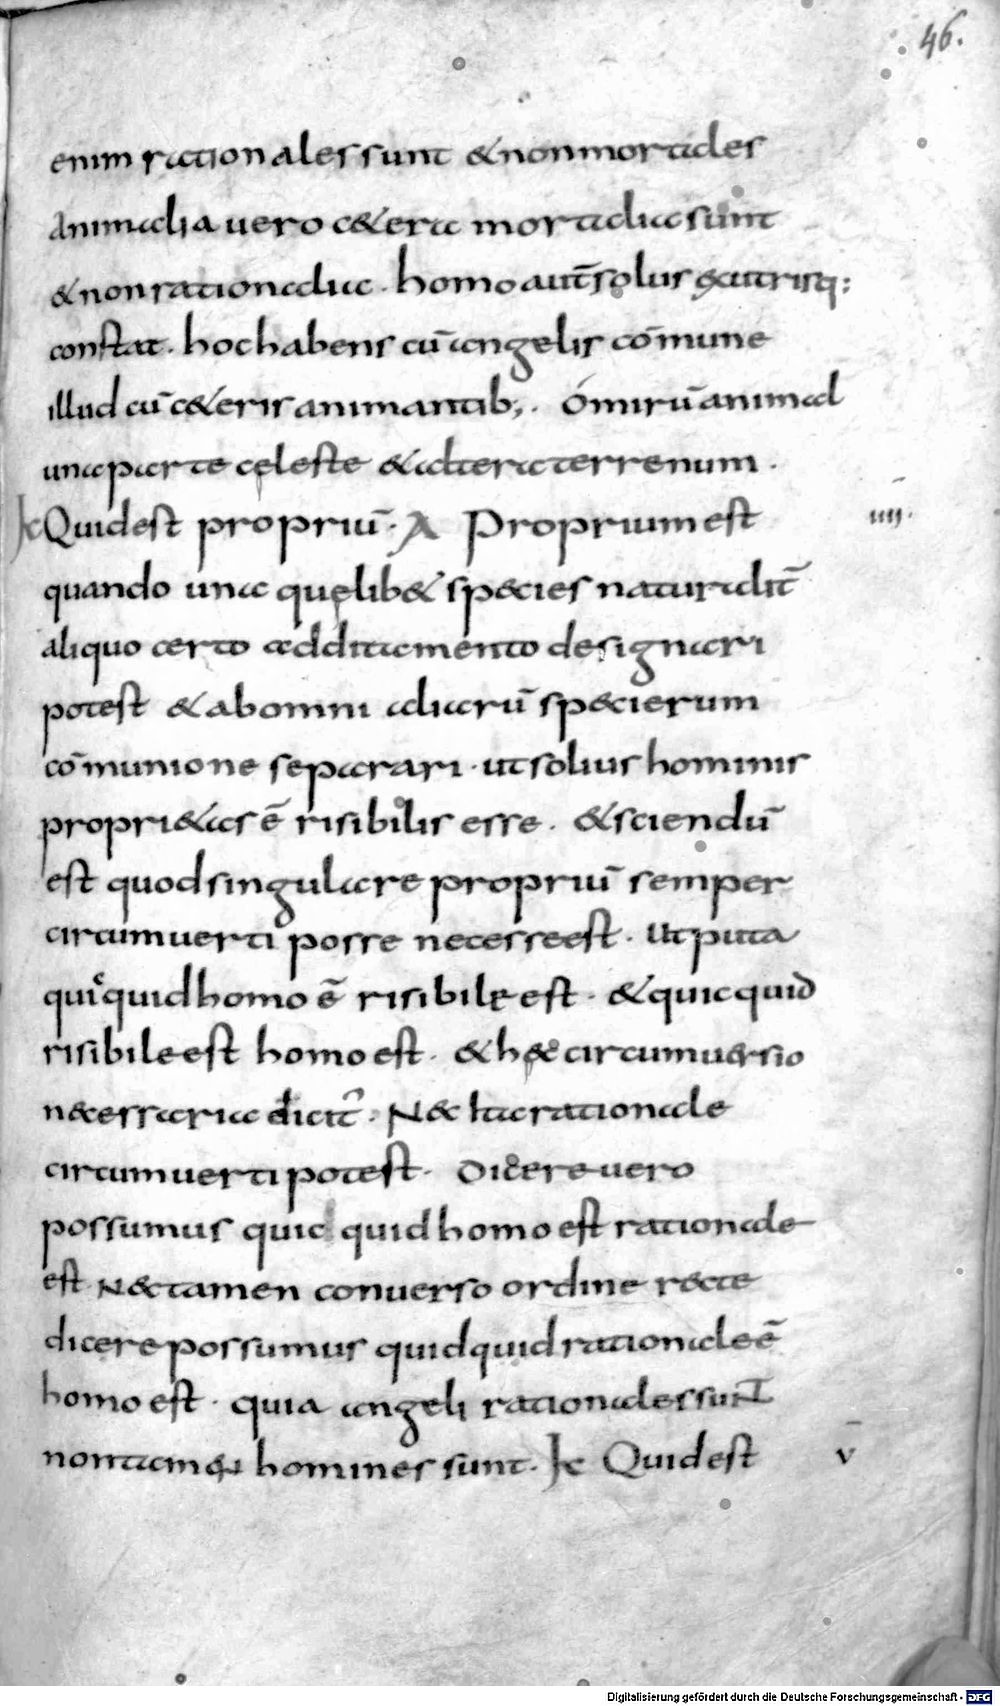 46.
enim rationales sunt & non mortales
Animalia vero c&era mortalia sunt
& non rationalia. homo aut̄ solus ex utrisq:
constat. hoc habens cū angelis cōmune
illud cū c&eris animantib;. O mirū animal
una parte cęleste & altera terrenum.
Quid est propriū. Proprium est
IIII.
quando una quęlib& species naturalit̄
aliquo certo additamento designari
potest & ab omni aliarū specierum
cōmunione separari. ut solius hominis
propri&as ē risibilis esse. & sciendū
est quod singulare propriū semper
circumverti posse necesse est. Ut puta
quicquid homo ē risibile est. & quicquid
risibile est homo est. & hęc circumversio
necessaria dicit̄. Nec ita rationale
circumverti potest. Dicere vero
possumus quic quid homo est rationale
est Nec tamen converso ordine recte
dicere possumus quidquid rationale ē
homo est. quia angeli rationales sunt
non tamen homines sunt. Quid est
V
Digitalisierung gefördert durch die Deutsche Forschungsgemeinschaft - DFG